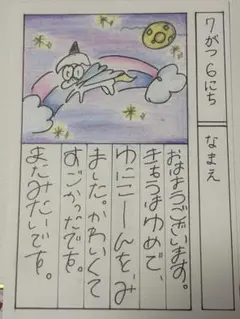 7がつ6にち
なまえ
おはようございます。
きょうはゆめで、
ゆにこーんを、み
ました。かわいくて
すごかったです。
またみたいです。